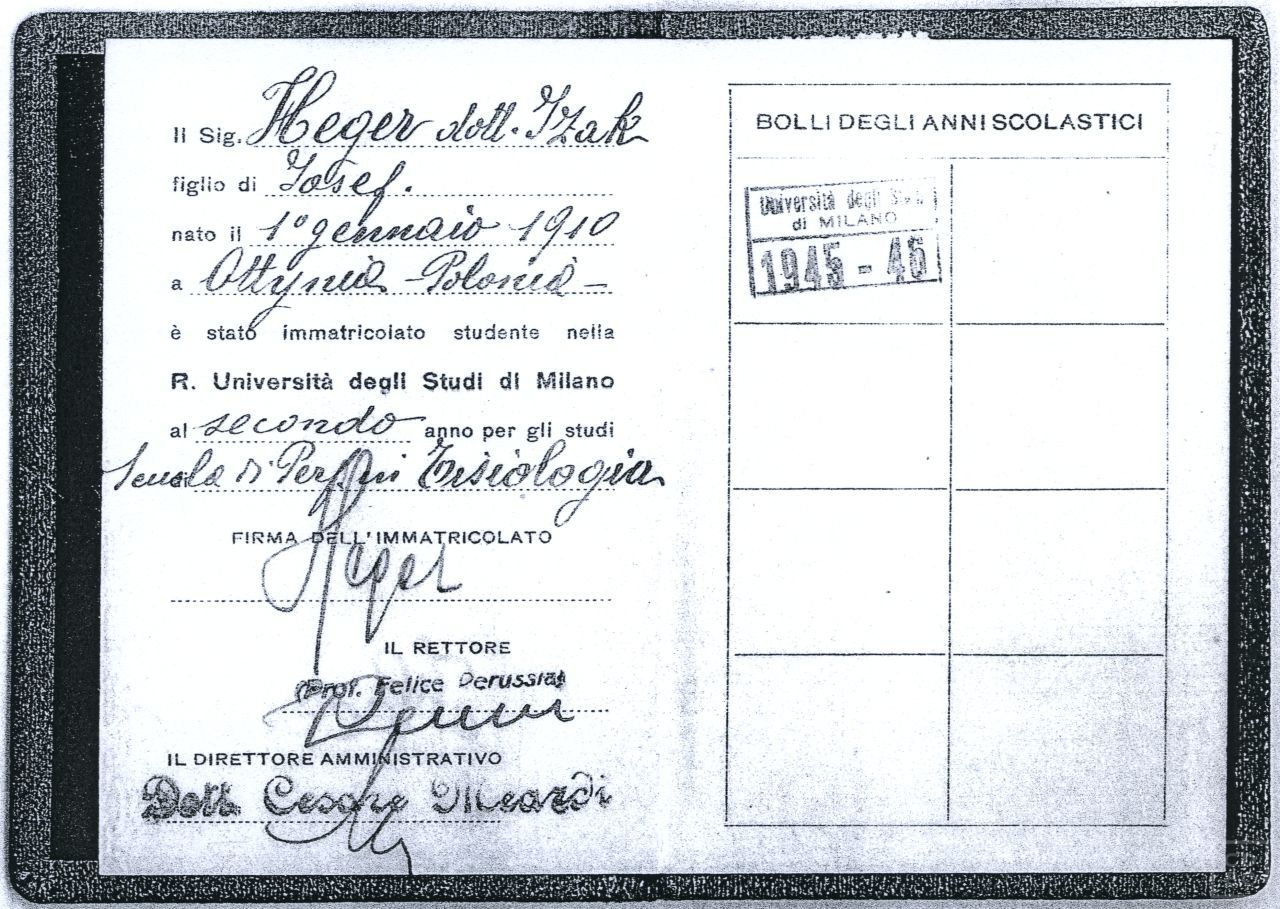 Il Sig. Heger dott. Izak
figlio di Josef.
nato il 1° gennaio 1910
a Ottynia - Polonia -
è stato immatricolato studente nella
R. Università degli Studi di Milano
al secondo anno per gli studi
Scuola di Perf. in Tisiologia
FIRMA DELL'IMMATRICOLATO
Heger
IL RETTORE
(Prof. Felice Perussia)
IL DIRETTORE AMMINISTRATIVO
Dott. Cesare Meardi
BOLLI DEGLI ANNI SCOLASTICI
Università degli Studi
di MILANO
1945 - 46